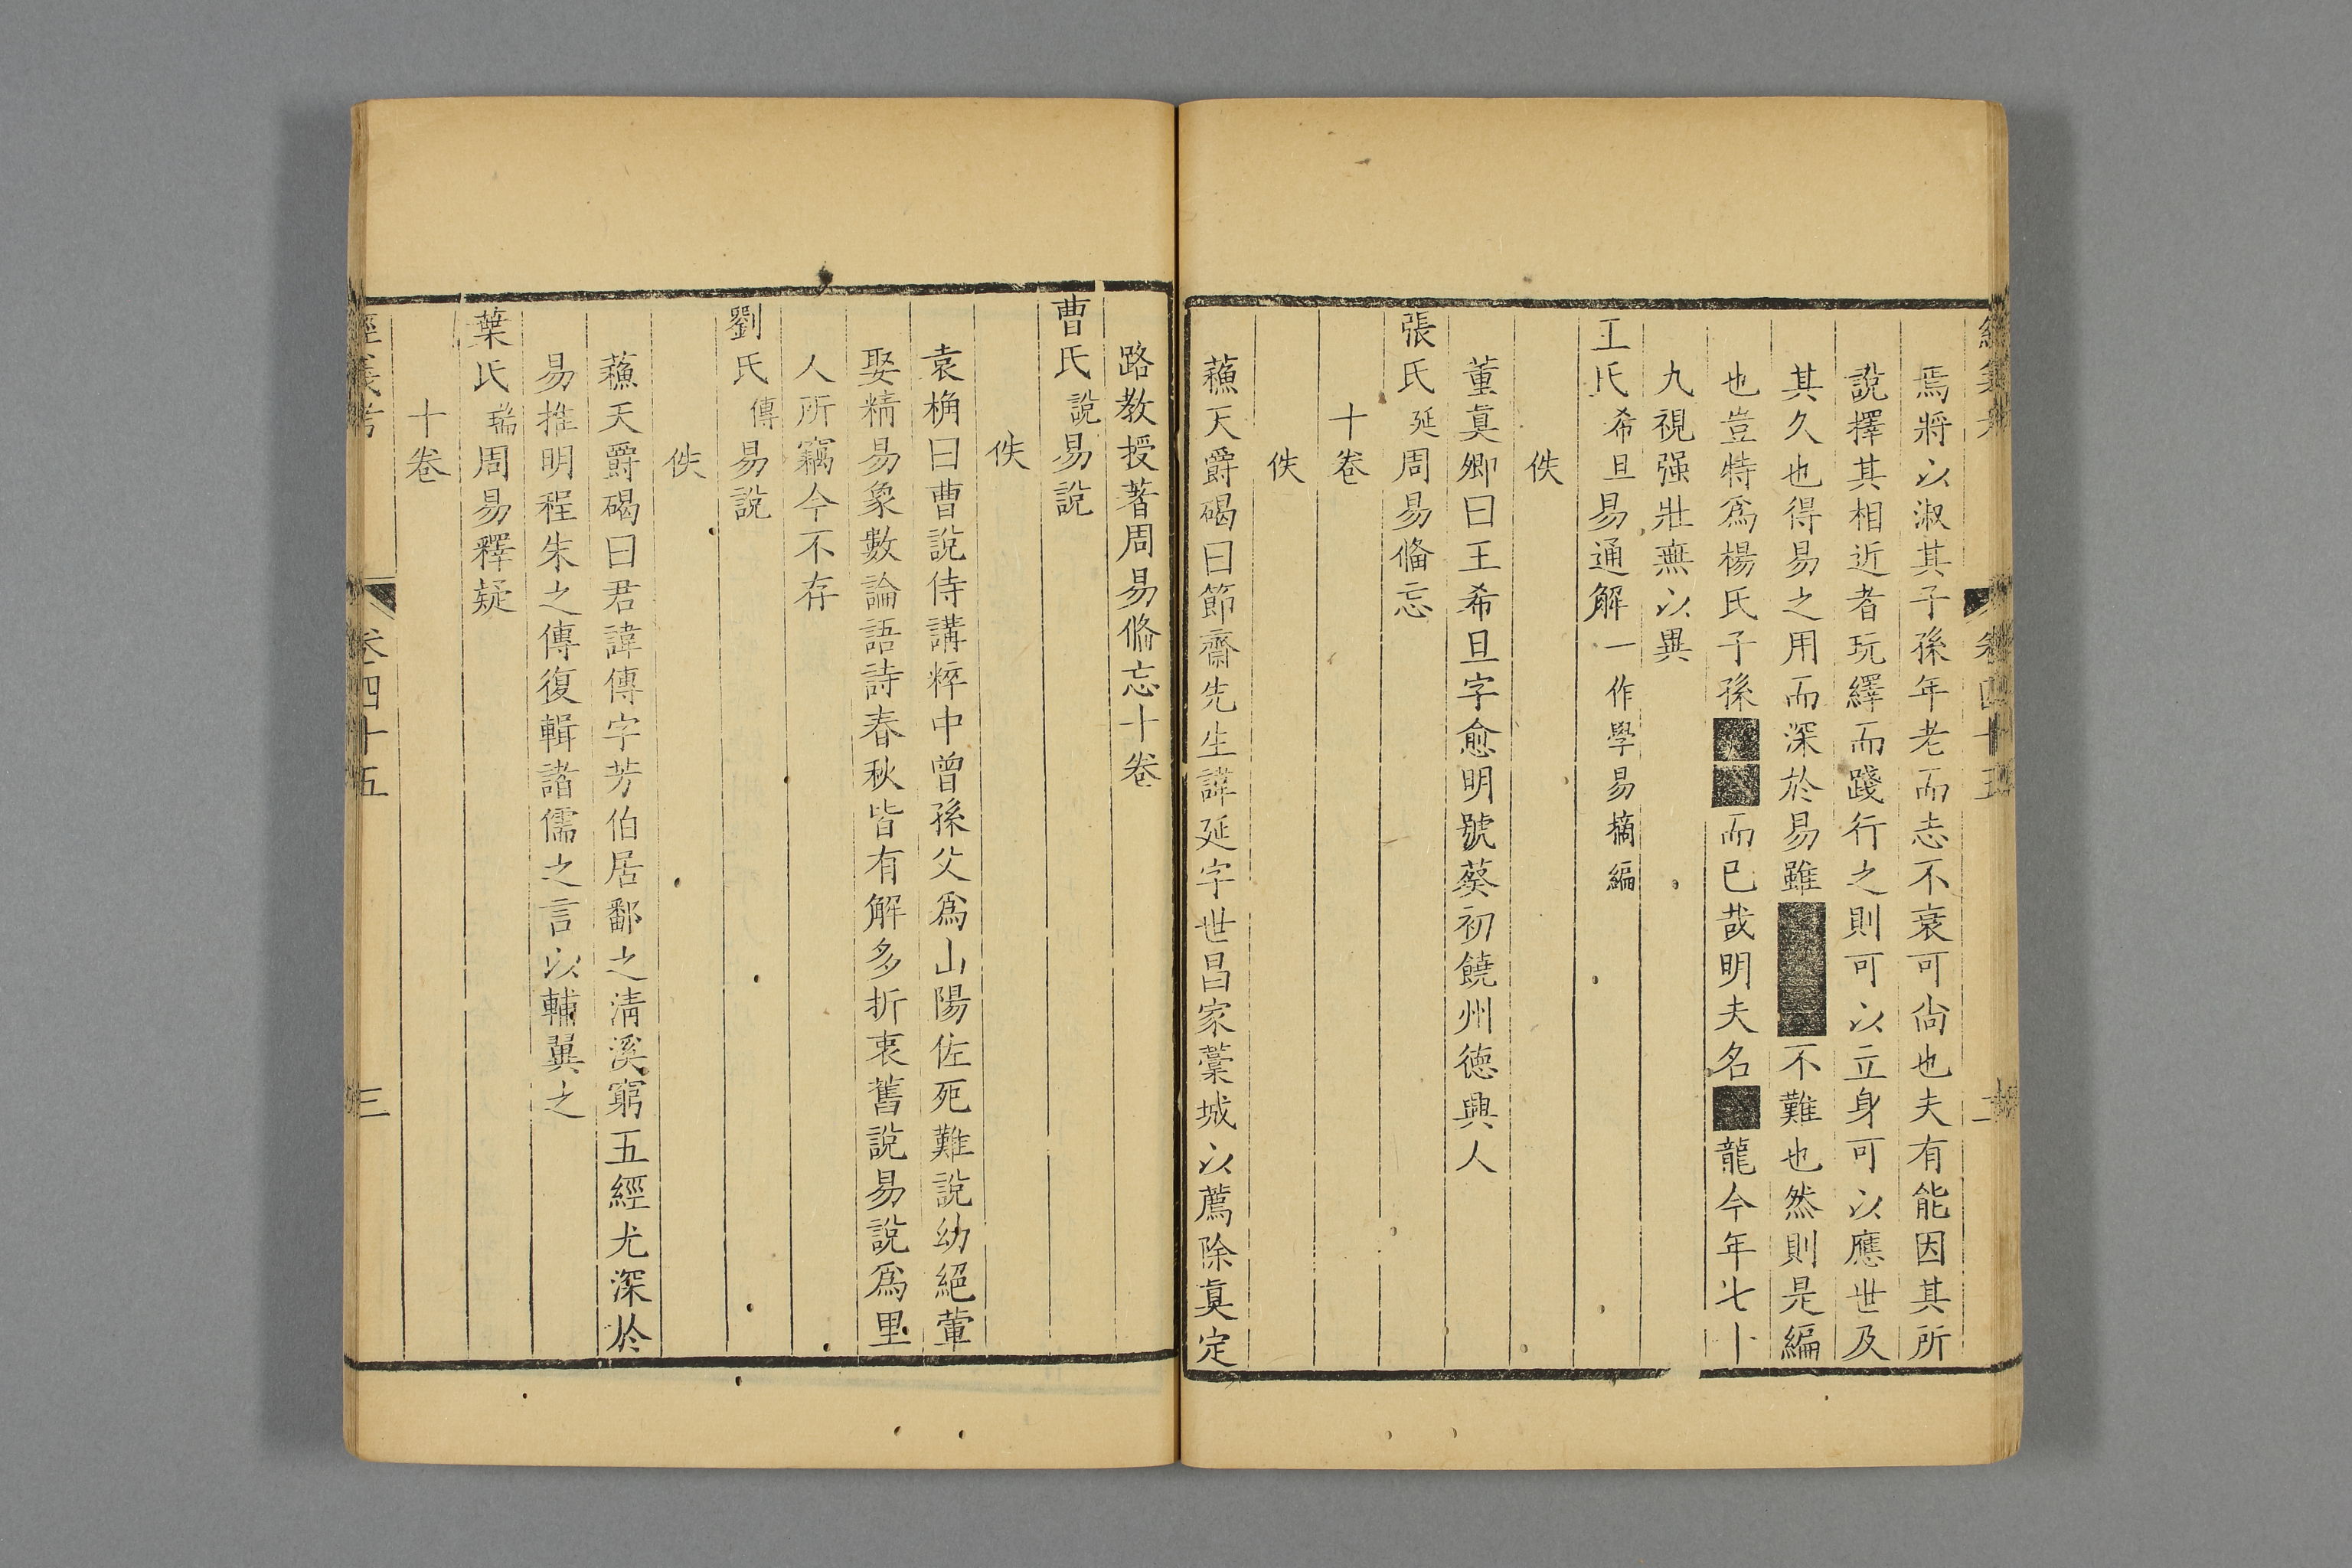 焉將以淑其子孫年老而志不衰可尙也夫有能因其所
說擇其相近者玩繹而踐行之則可以立身可以應世及
其久也得易之用而深於易雖不難也然則是編
也豈特爲楊氏子孫而已哉明夫名龍今年七十
九視强壯無以異
王氏希旦易通解一作學易摘編
佚
董眞卿曰王希旦字愈明號葵初饒州德興人
張氏延周易俻忘
十卷
佚
蘓天爵碣曰節齋先生諱延字世昌家藳城以薦除眞定
路教授著周易俻忘十卷
曹氏說易說
佚
袁桷曰曹說侍講粹中曾孫父爲山陽佐死難說幼絕葷
娶精易象數論語詩春秋皆有解多折衷舊說易說爲里
人所竊今不存
劉氏傳易說
佚
蘓天爵碣曰君諱傳字芳伯居鄱之清溪窮五經尤深於
易推明程朱之傳復輯諸儒之言以輔翼之
葉氏瑞周易釋疑
十卷
經義考
卷四十五
三